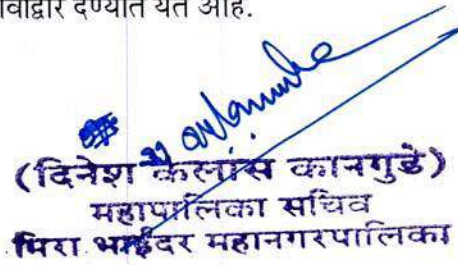 देण्यात येत आहे.
(दिनेश कैलास कानगुडे)
महापालिका सचिव
मिरा भाईंदर महानगरपालिका